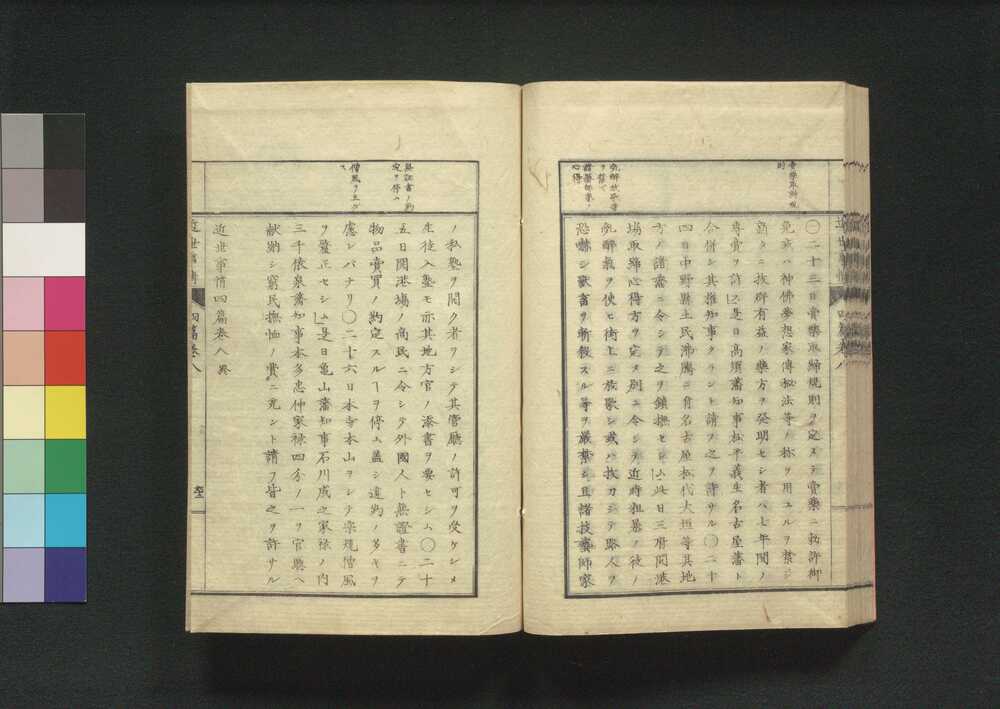 賣藥取締規
則
乱醉放歌等
ヲ禁シ
諸藝師家ノ
心得
〇二十三日賣藥取締規則ヲ定ム乃テ賣藥ニ勅許御
免或ハ神佛夢想家傳秘法等ノ称ヲ用ユルヲ禁シ
新タニ抜群有益ノ藥方ヲ発明セシ者ハ七年間ノ
専賣ヲ許ス是日高須藩知事松平義生名古屋藩ト
合併シ其推知事タラント請フ之ヲ許サル〇二十
四日中野縣土民沸騰ニ自名古屋松代大垣等其地
方ノ諸藩ニ令シテ之ヲ鎮撫セシム此日三府開港
場取締心得方ヲ定ム別ニ令シテ近時粗暴ノ徒ノ
乱醉氣ヲ使ヒ街上ニ放歌シ或ハ抜刀シテ路人ヲ
恐嚇シ獣畜ヲ斬殺スル等ヲ嚴禁シ且諸技藝師家
無証書ノ約
定ヲ停ム
僧風ヲ正サシ
ム
ノ私塾ヲ開ク者ヲシテ其管廳ノ許可ヲ受ケシメ
生徒入塾モ亦其地方官ノ添書ヲ要セシム〇二十
五日開港場ノ商民ニ令シテ外國人ト無證書ニテ
物品賣買ノ約定スルヿヲ停ム蓋シ違約ノ多キヲ
慮レバナリ〇二十六日本寺本山ヲシテ宗規僧風
ヲ釐正セシム是日亀山藩知事石川成之家禄ノ内
三千俵泉藩知事本多忠伸家禄四分ノ一ヲ官縣ヘ
献納シ窮民撫恤ノ費ニ充ント請フ皆之ヲ許サル
近世事情四篇巻八 畢
近世事情
四篇巻八